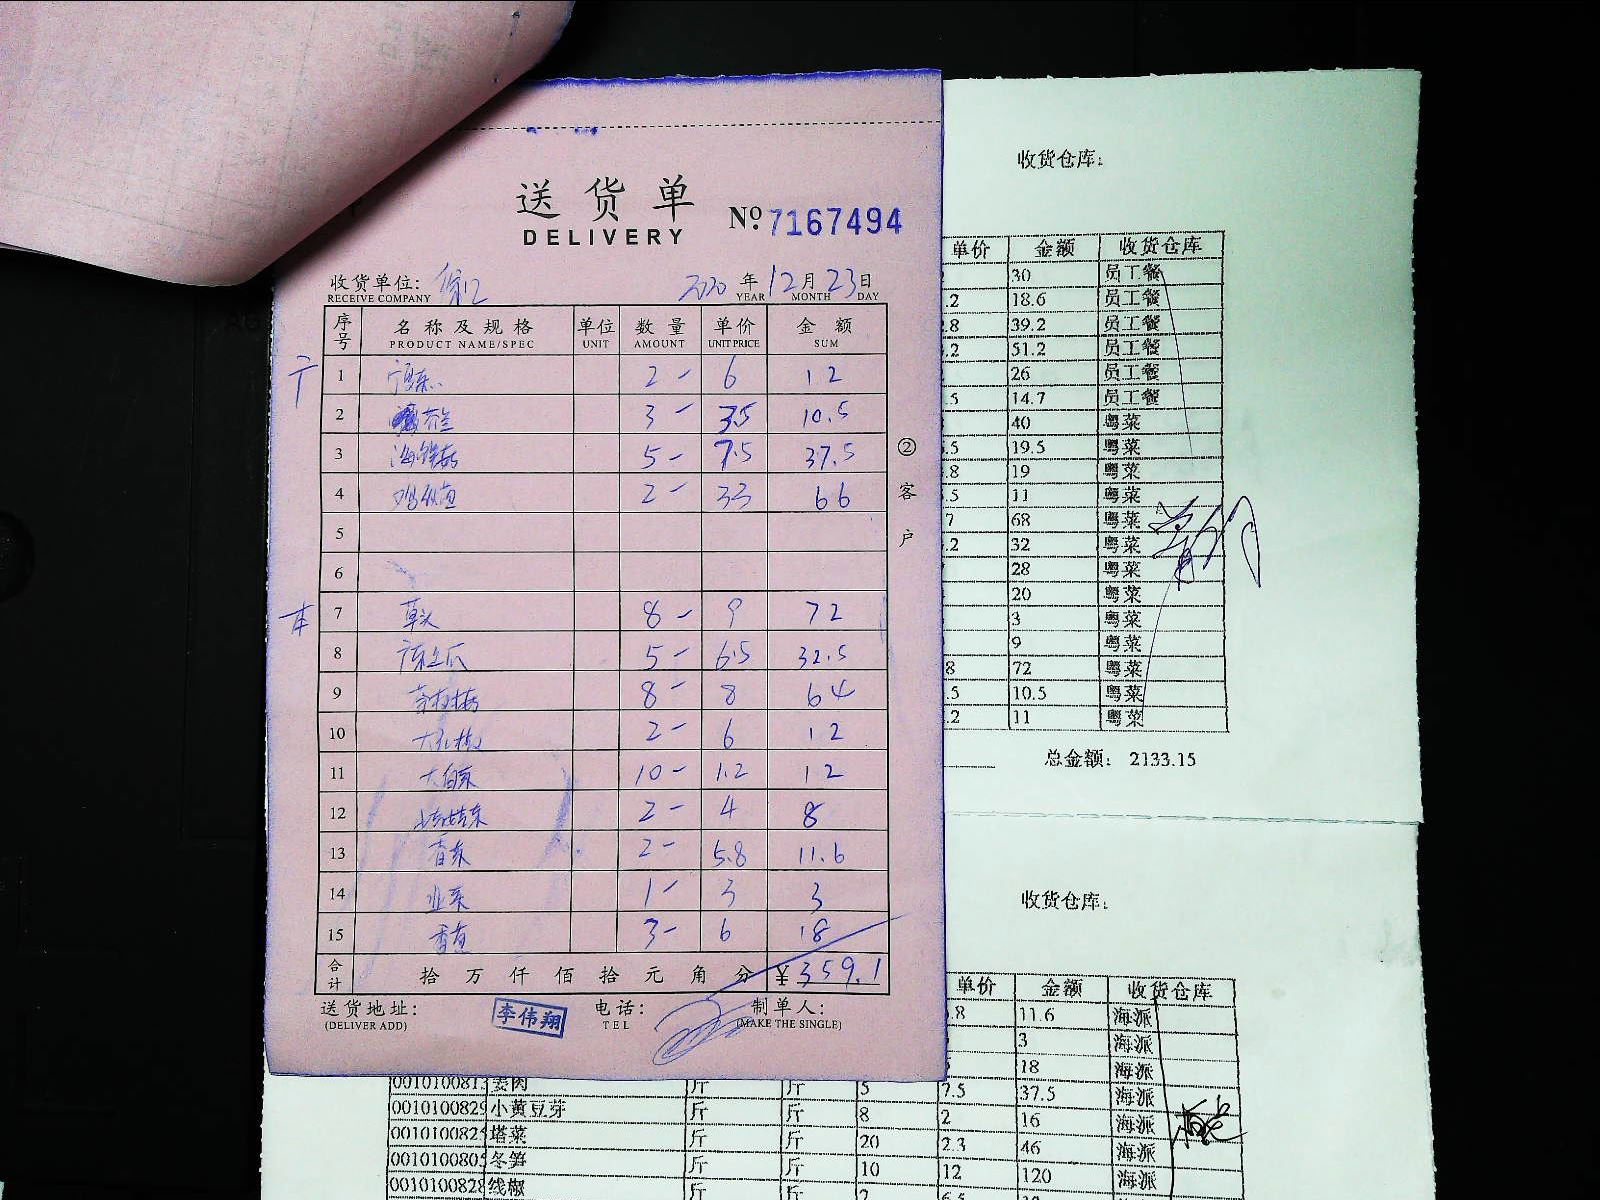 送货单
DELIVERY
№ 7167494
收货单位: 徐汇 2020 年 12 月 23 日
RECEIVE COMPANY YEAR MONTH DAY
序号 名称及规格 单位 数量 单价 金额
PRODUCT NAME/SPEC UNIT AMOUNT UNIT PRICE SUM
1 2- 6 12
2 3- 3.5 10.5
3 5- 7.5 37.5
4 2- 33 66
5
6
7 草头 8- 9 72
8 5- 6.5 32.5
9 8- 8 64
10 2- 6 12
11 大白菜 10- 1.2 12
12 2- 4 8
13 香菜 2- 5.8 11.6
14 1- 3 3
15 香菇 3- 6 18
合计 拾万仟佰拾元角分 ¥359.1
送货地址: 李伟翔 电话: 制单人:
(DELIVER ADD) TEL (MAKE THE SINGLE)
②客户
收货仓库:
单价 金额 收货仓库
30 员工餐
.2 18.6 员工餐
.8 39.2 员工餐
.2 51.2 员工餐
26 员工餐
.5 14.7 员工餐
40 粤菜
.5 19.5 粤菜
.8 19 粤菜
.5 11 粤菜
7 68 粤菜
.2 32 粤菜
28 粤菜
20 粤菜
3 粤菜
9 粤菜
8 72 粤菜
.5 10.5 粤菜
.2 11 粤菜
总金额: 2133.15
收货仓库:
单价 金额 收货仓库
.8 11.6 海派
3 海派
18 海派
0010100813 姜肉 斤 斤 5 7.5 37.5 海派
0010100829 小黄豆芽 斤 斤 8 2 16 海派
001010082 塔菜 斤 斤 20 2.3 46 海派
001010080 冬笋 斤 斤 10 12 120 海派
0010100828 线椒 斤 斤 2 6.5